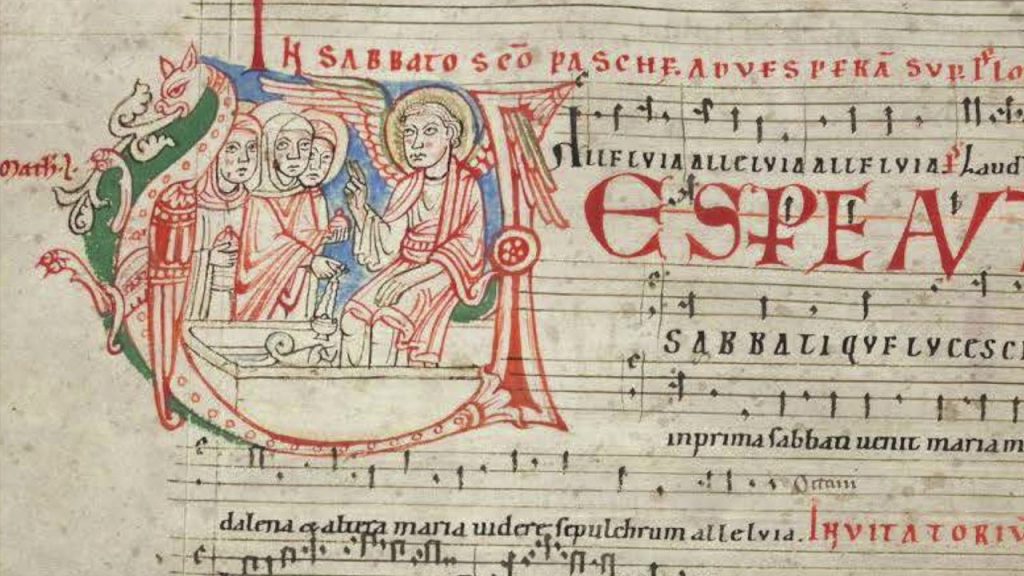 IN SABBATO SCŌ PASCHE. ADVESPERĀ SVP.
ALLELVIA ALLELVIA ALLELVIA Laud
Math.
VESPE AV
SABBATI QVE LVCESC
in prima sabbati uenit maria m
dalena & altera maria uidere sepulchrum allelvia. INVITATORIV